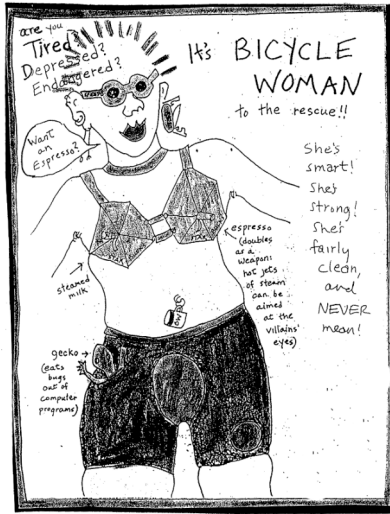 are you
Tired?
Depressed?
Endangered?
It's BICYCLE
WOMAN
to the rescue!!
Want
an
Espresso?
She's
smart!
She's
strong!
She's
fairly
clean,
and
NEVER
mean!
espresso
(doubles
as a
weapon:
hot jets
of steam
can be
aimed
at the
villains'
eyes)
steamed
milk
gecko
(eats
bugs
out of
computer
programs)